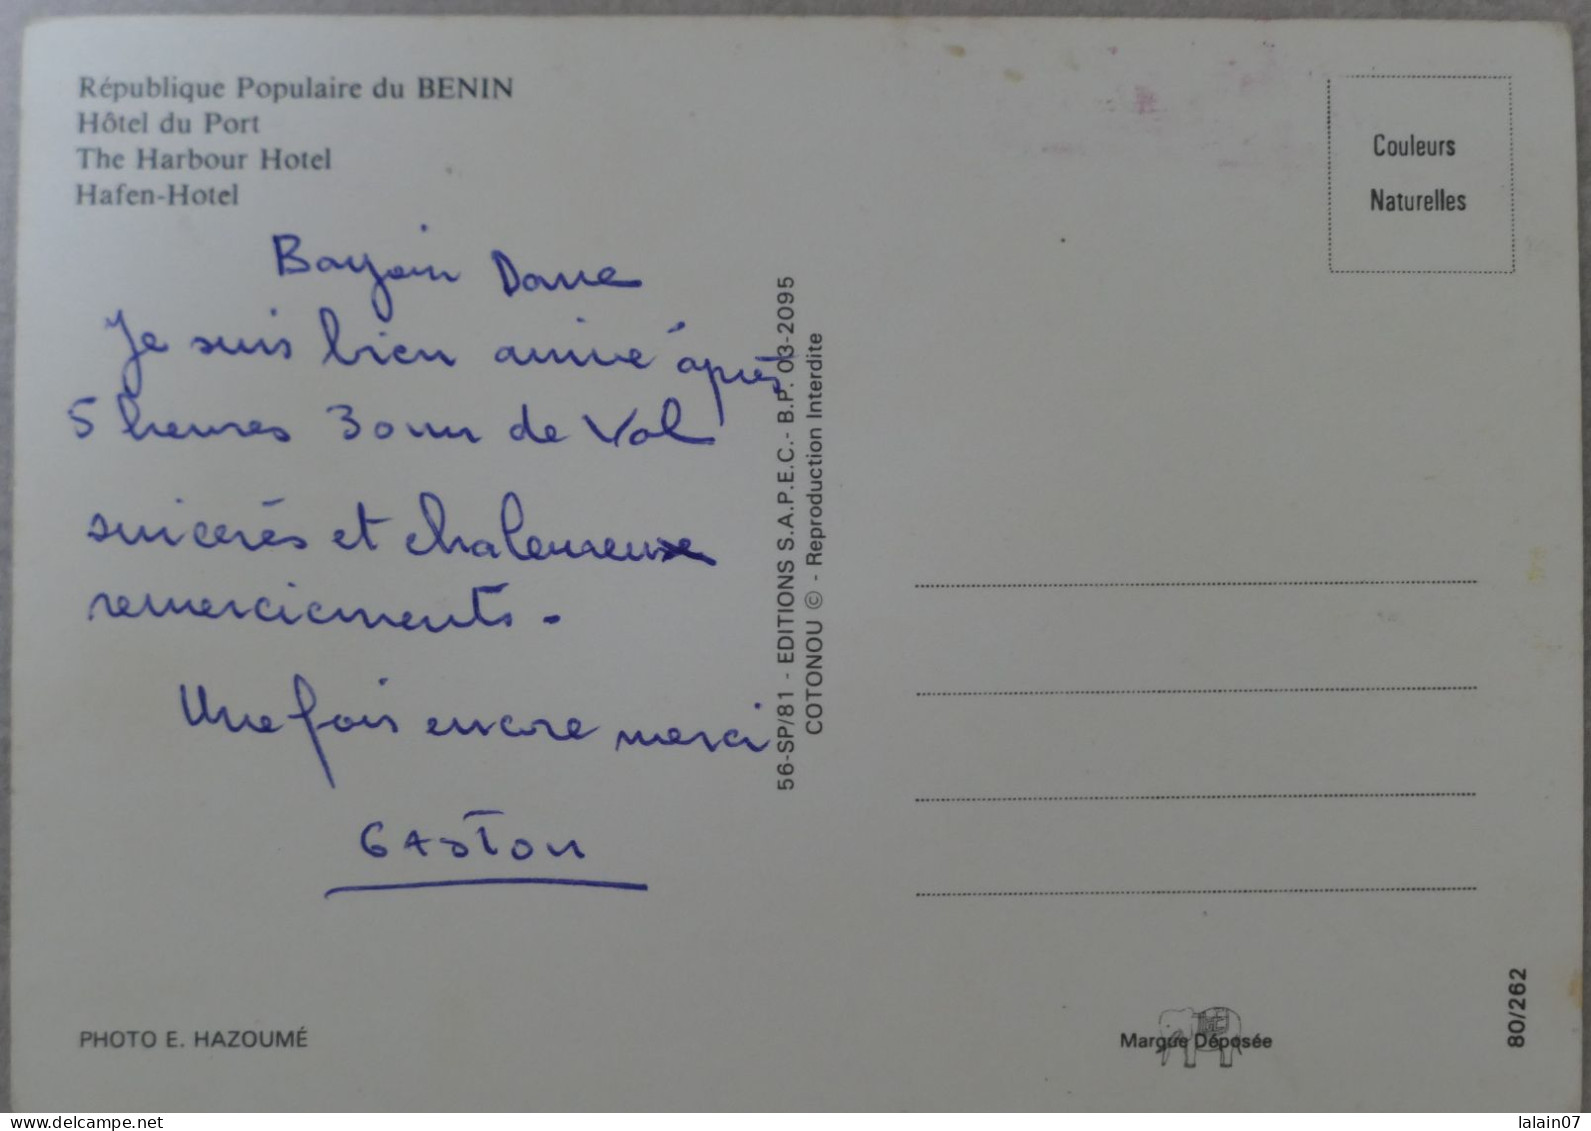 République Populaire du BENIN
Hôtel du Port
The Harbour Hotel
Hafen-Hotel
Je suis bien arrivé après
5 heures 30 mn de Vol
sincerès et chaleureuse
remerciements -
Une fois encore merci
GASTON
PHOTO E. HAZOUMÉ
56-SP/81 - EDITIONS S.A.P.E.C. - B.P. 03-2095
COTONOU © - Reproduction Interdite
Couleurs
Naturelles
Marque Déposée
80/262
www.delcampe.net
lalain07